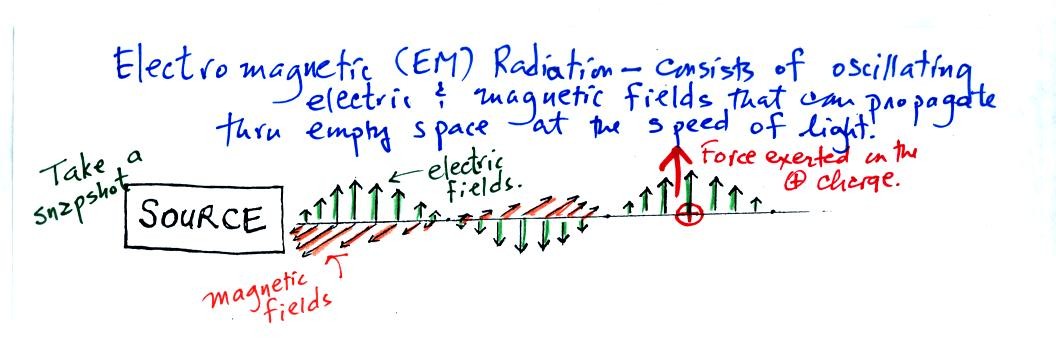 Electromagnetic (EM) Radiation – consists of oscillating
electric & magnetic fields that can propagate
thru empty space at the speed of light.
Take a
snapshot
SOURCE
electric
fields.
Force exerted on the
⊕ charge.
magnetic
fields